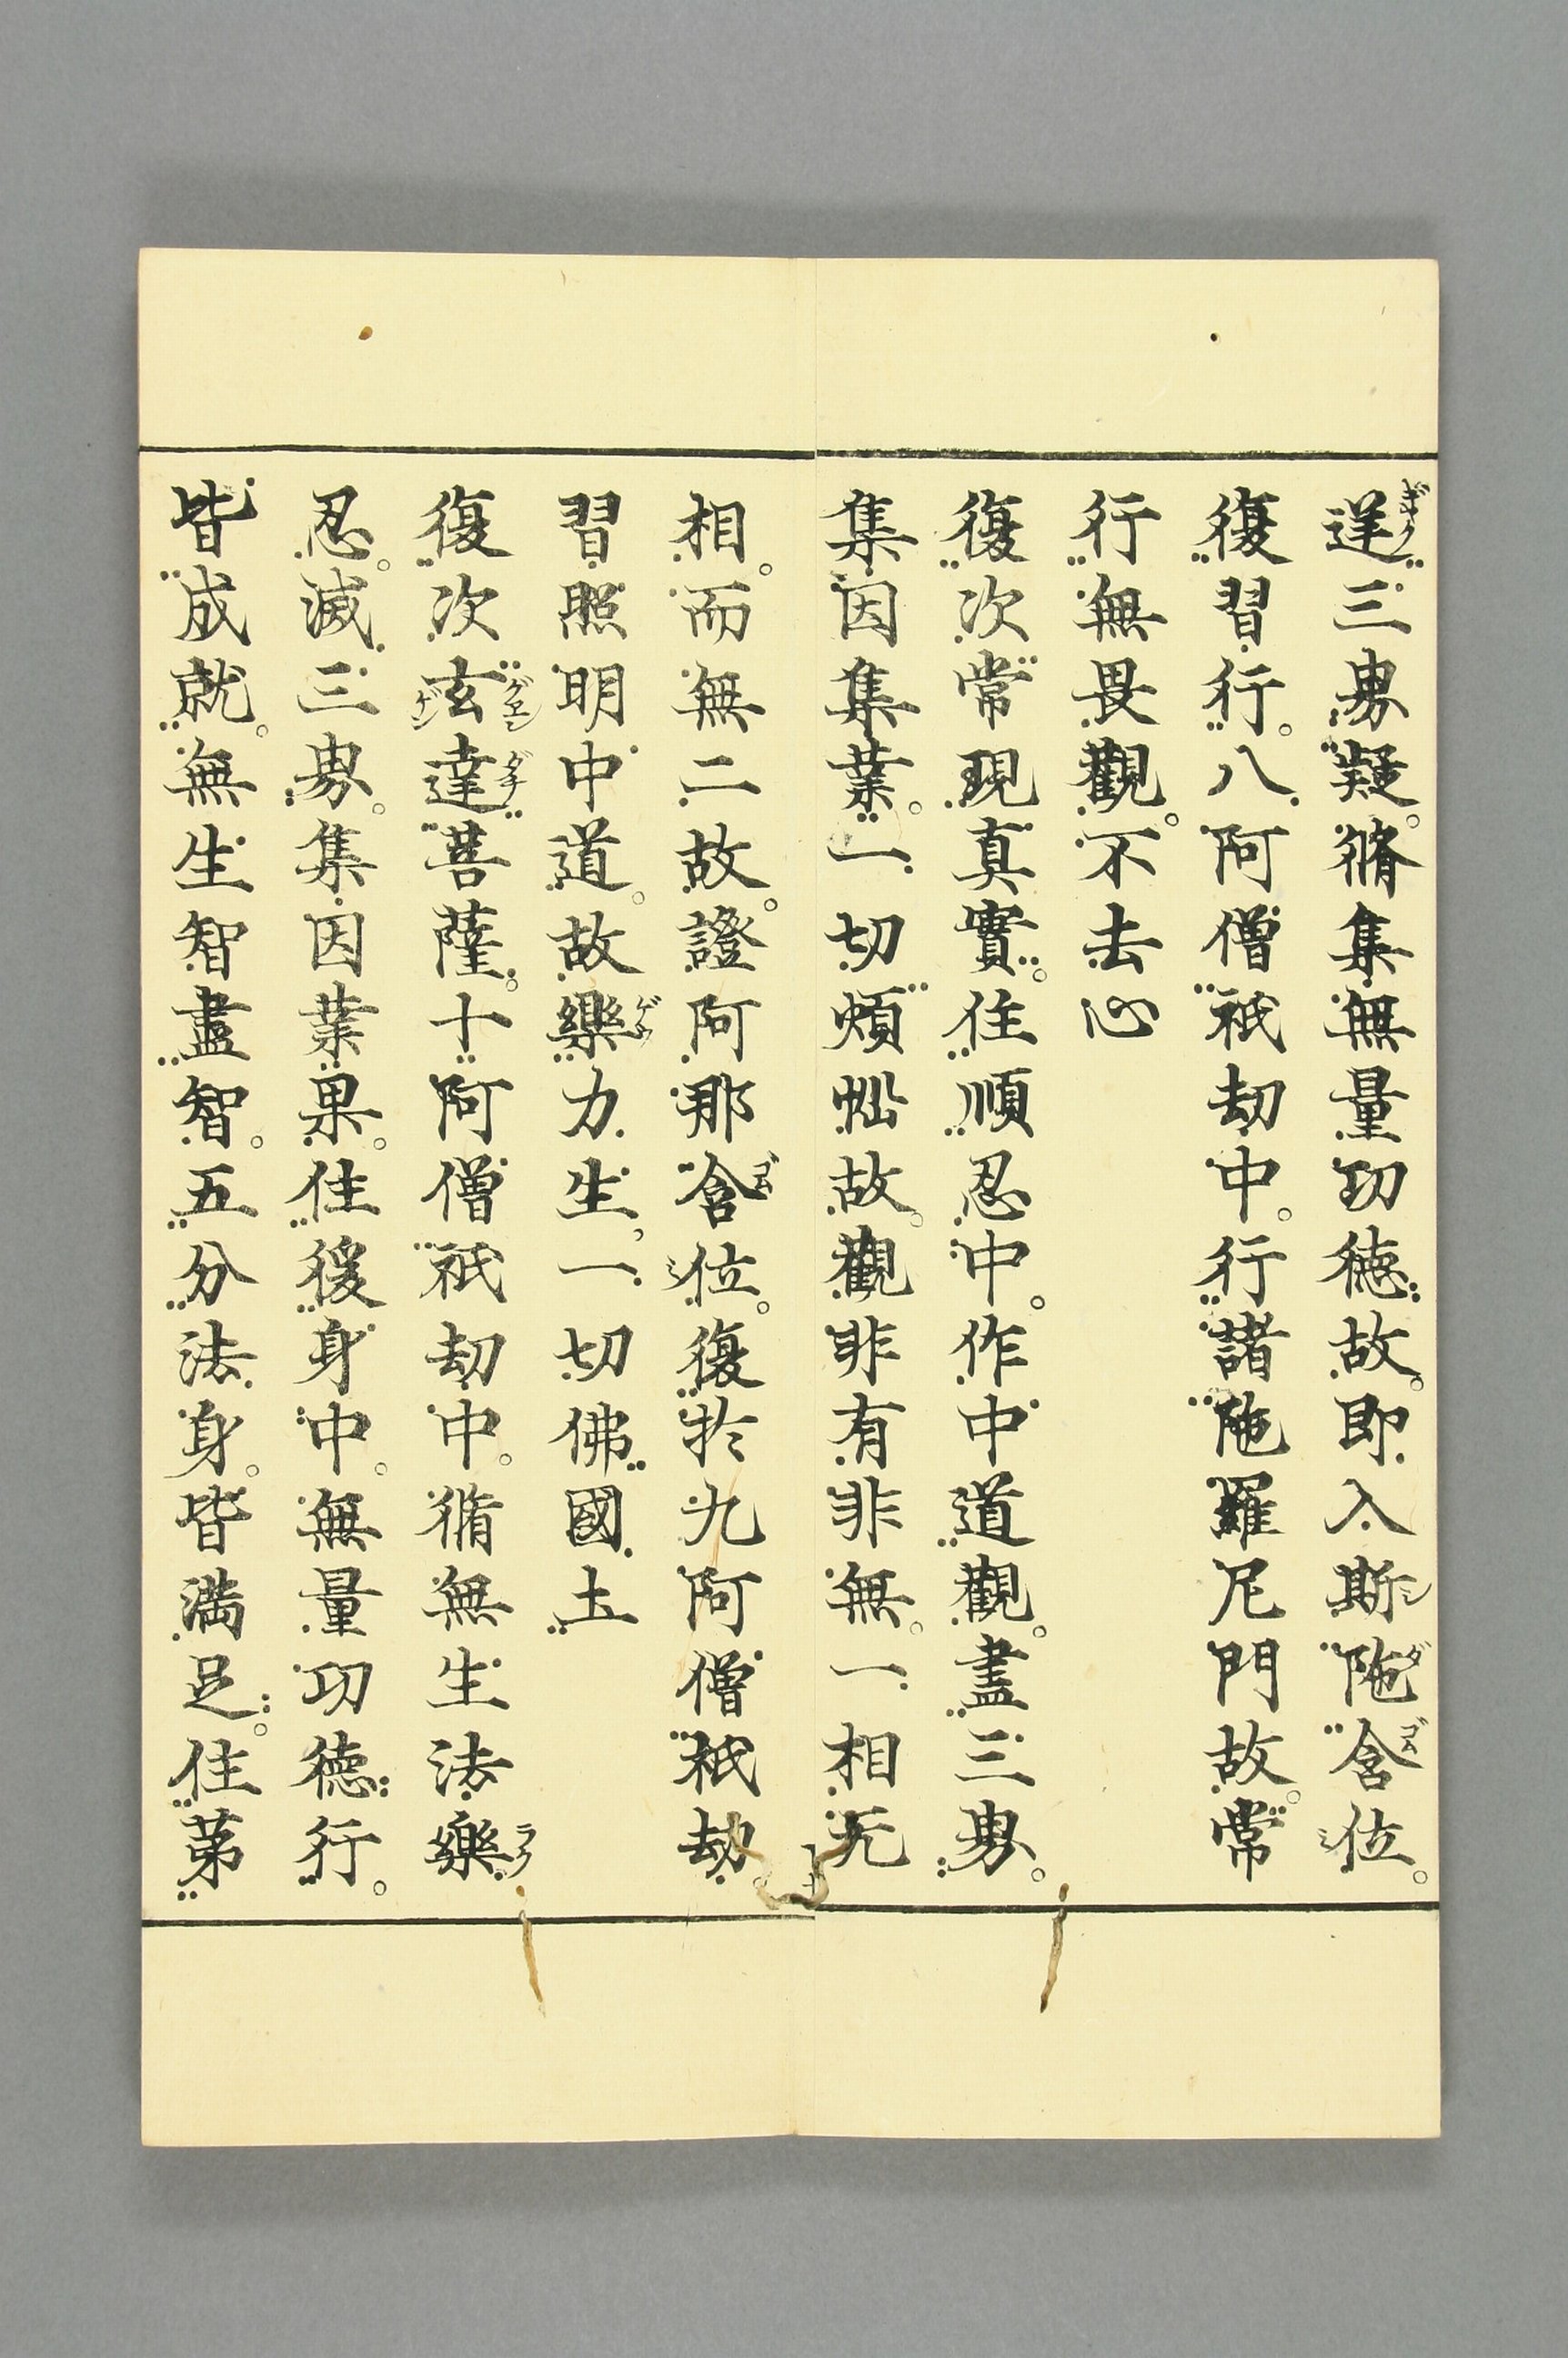 逆三界疑。脩集無量功徳故。即入斯陁含位。
ギャク シ ダ ゴム
復習行。八阿僧祇劫中。行諸陁羅尼門故。常
行無畏觀。不去心
復次常現真實。住順忍中。作中道觀。盡三界。
集因集業。一切煩惱故。觀非有非無。一相无
相。而無二故。證阿那含位。復於九阿僧祇劫。
ゴム
習照明中道。故樂力生一切佛國土
ゲウ
復次玄達菩薩。十阿僧祇劫中。脩無生法樂
グエン ゲン ダチ ラク
忍。滅三界。集因業果。住後身中。無量功徳行。
皆成就。無生智盡智。五分法身。皆満足。住苐